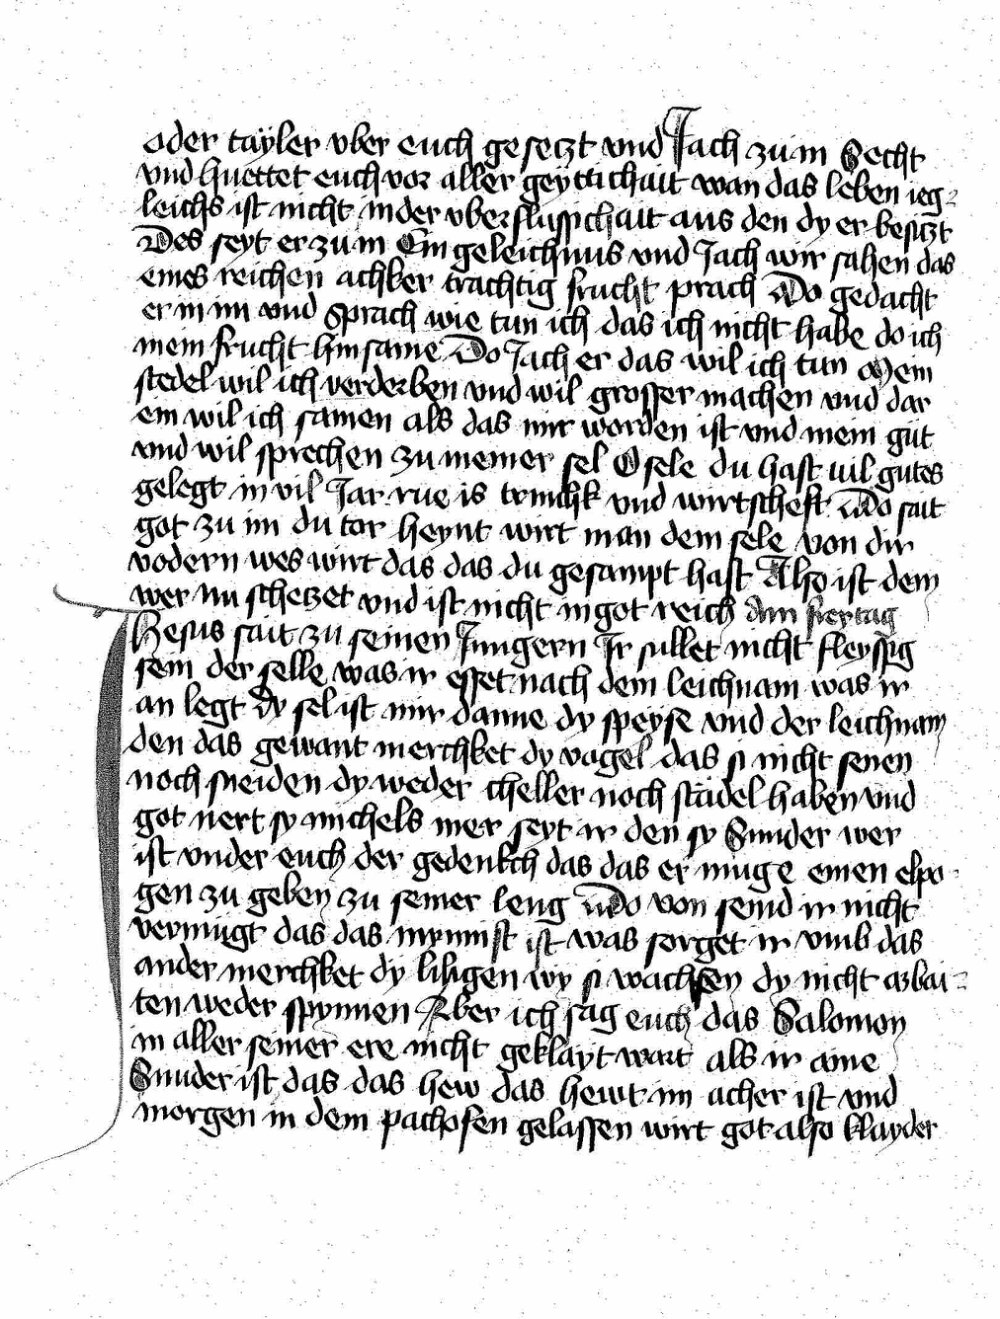 oder tayler vber euch gesetzt vnd Jach zu in Secht
vnd huettet euch vor aller geyttichait wan das leben ieg-
leichs ist nicht in der vberflussichait aus den dy er besitzt
Des seyt er zu in Ein geleichnus vnd Jach wir sahen das
eines reichen achker trachtig frucht prach Do gedacht
er in im vnd sprach wie tun ich das ich nicht habe do ich
mein frucht hin same Do Jach er das wil ich tun Mein
stedel wil ich verderben vnd wil grosser machen vnd dar
ein wil ich samen als das mir worden ist vnd mein gut
vnd wil sprechen zu meiner sel O sele du hast vil gutes
gelegt in vil Jar rue is trinchk vnd wirtscheft Do sait
got zu im du tor heynt wirt man dein sele von dir
vodern wes wirt das das du gesampt hast Also ist dem
wer im schetzet vnd ist nicht in got reich Am freytag
Jhesus sait zu seinen Jungern Ir sullet nicht fleyssig
sein der selle was ir esset nach dem leichnam was ir
an legt dy sel ist mir danne dy speyse vnd der leichnam
den das gewant merchket dy vogel das si nicht senen
noch sneiden dy weder cheller noch stadel haben vnd
got nert sy michels mer seyt ir den sy Sunder wer
ist vnder euch der gedenkch das das er muge einen elpo-
gen zu geben zu seiner leng Do von seind ir nicht
vermugt das das mynnist ist was sorget ir vmb das
ander merchket dy liligen wy si wachsen dy nicht arbai-
ten weder spynnen Aber ich sag euch das Salomon
in aller seiner ere nicht geklayt wart als ir aine
Sunder ist das das hew das hewt im acher ist vnd
morgen in dem pachofen gelassen wirt got also klayder